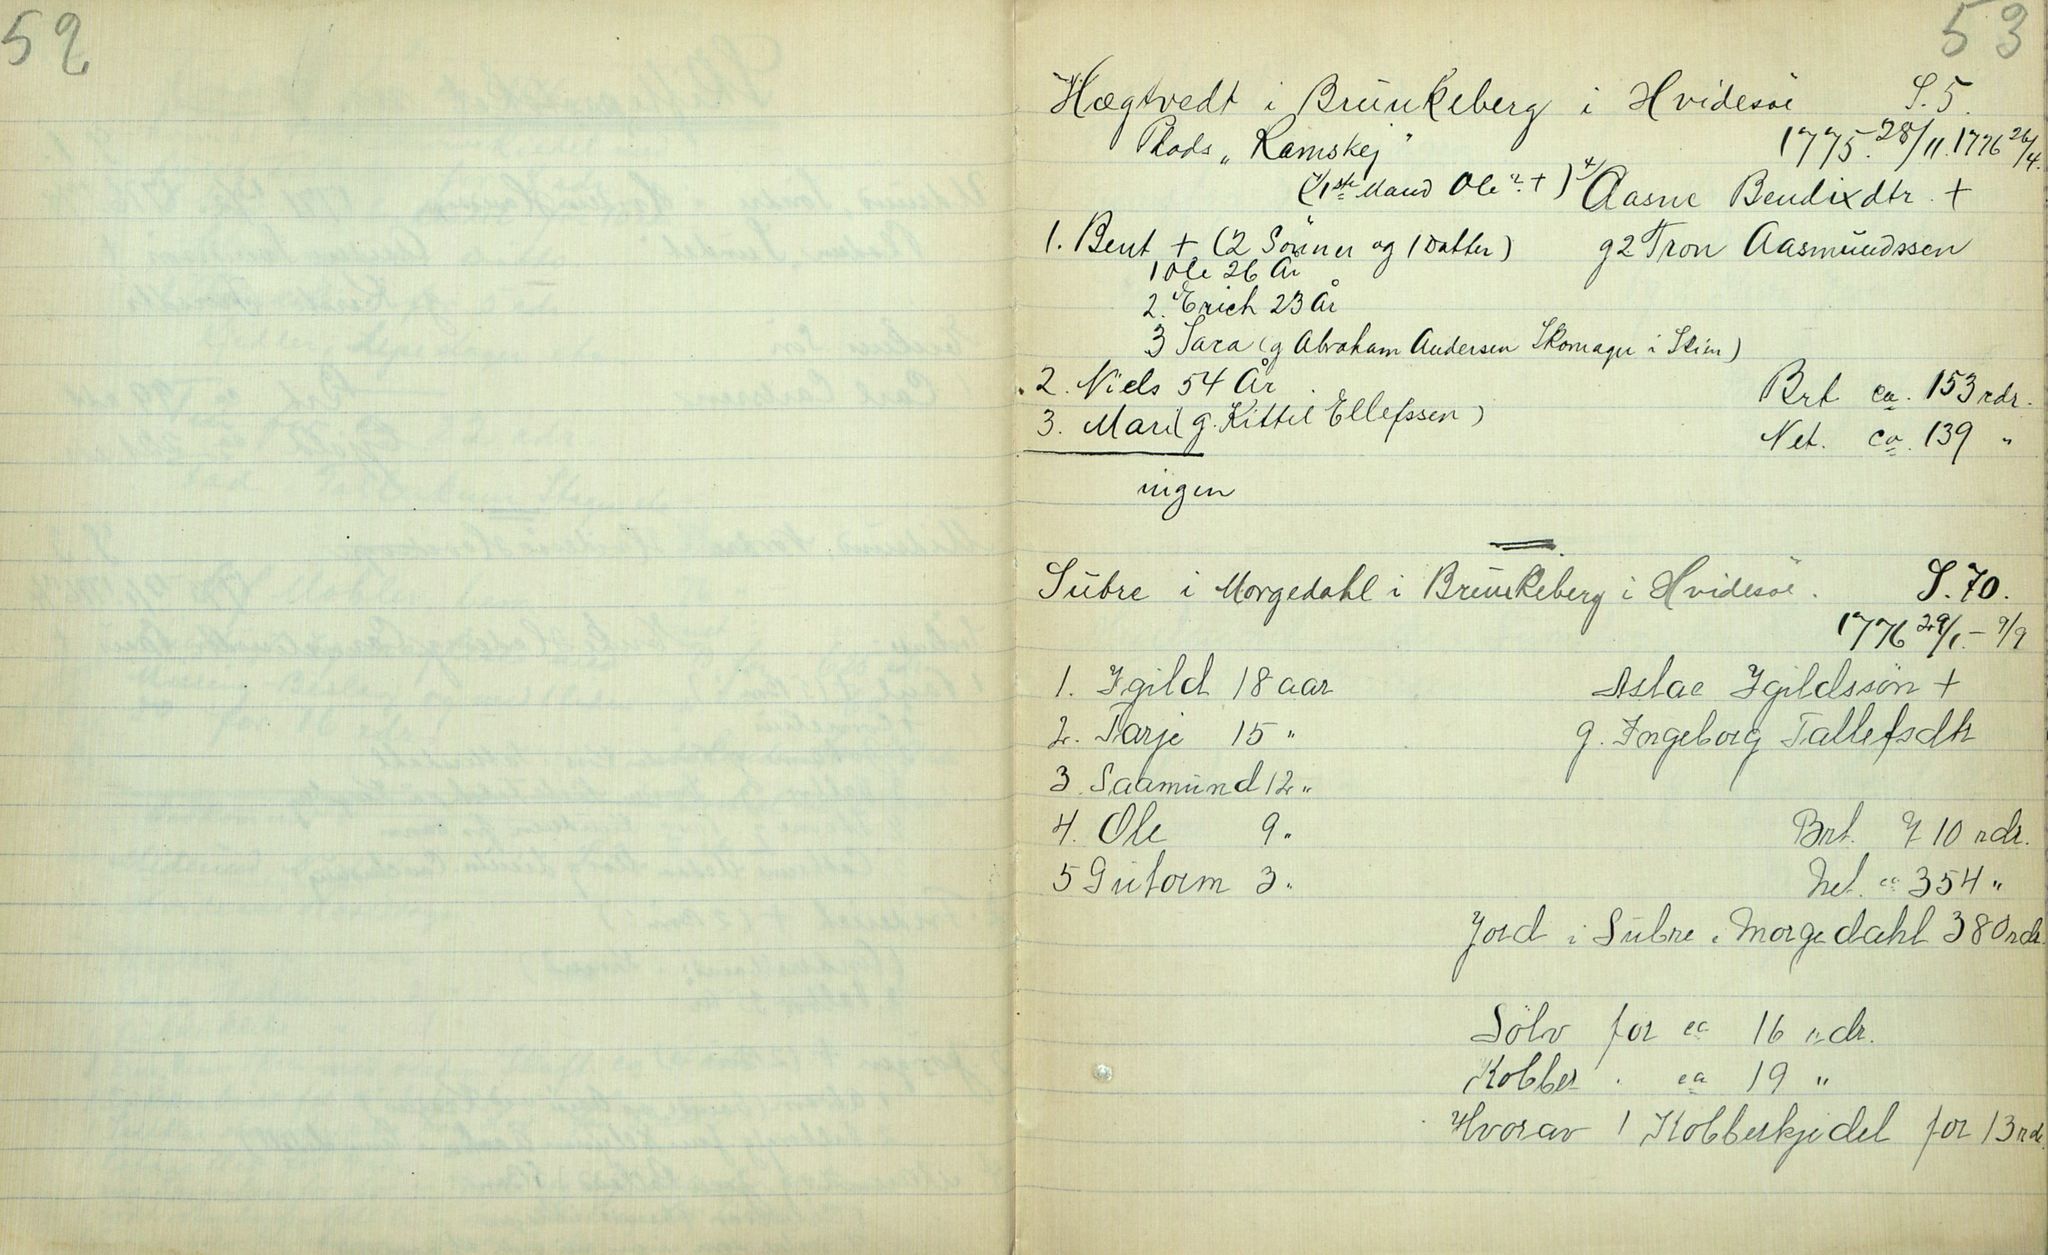 52
53
Hægtvedt i Brunkeberg i Hvidesöe S. 5.
Plads „Ramskej" 1775 28/11. 1776 26/4.
(1ste Mand Ole ? +) Aasne Bendixdtr. +
1. Bent + (2 Sönner og 1 Datter) g2 Tron Aasmundssen
1 Ole 26 År
2. Erich 23 År
3 Sara (g Abraham Andersen Skomager i Skien)
2. Niels 54 År Brt ca. 153 rdr.
3. Mari (g. Kittil Ellefssen) Net. ca. 139 "
ingen
Subre i Morgedahl i Brunkeberg i Hvidesöe. S. 70.
1776 29/1. - 9/9
1. Igild 18 aar Aslac Igildssön +
2. Tarje 15 " g. Ingeborg Tallefsdtr
3. Saamund 12 "
4. Ole 9 " Brt. 710 rdr.
5 Gutorm 3 " Net. ca 354 "
Jord i Subre i Morgedahl 380 rdr.
Sölv for ca 16 rdr.
Kobber " ca 19 "
Hvorav 1 Kobberkjedel for 13 rdr